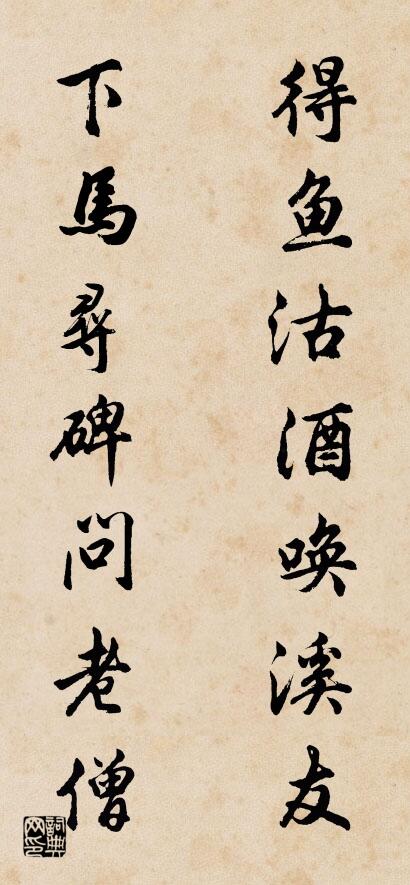 得鱼沽酒唤溪友
下馬尋碑問老僧
詞典网印